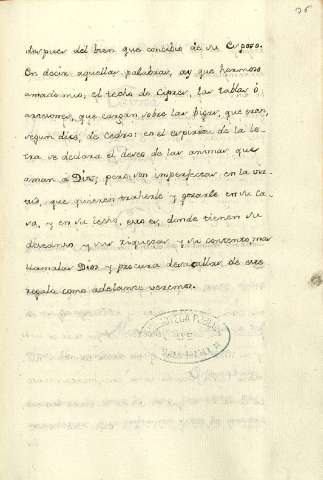 36
despues del bien que concibio de su Esposo.
En decir aquellas palabras, ay que hermoso
amado mio, el techo de Cipres, las tablas ó
artesones, que cargan sobre las bigas, que eran,
segun dice, de Cedro: en el espiritu de la le-
tra se declara el deseo de las animas que
aman á Dios, pero son imperfectas en la vir-
tud, que quieren traherle y gozarle en su ca-
sa, y en su lecho, esto es, donde tienen su
descanso, y sus riquezas, y su contento, mas
llamalas Dios y procura desacallas de este
regalo como adelante veremos.
DE